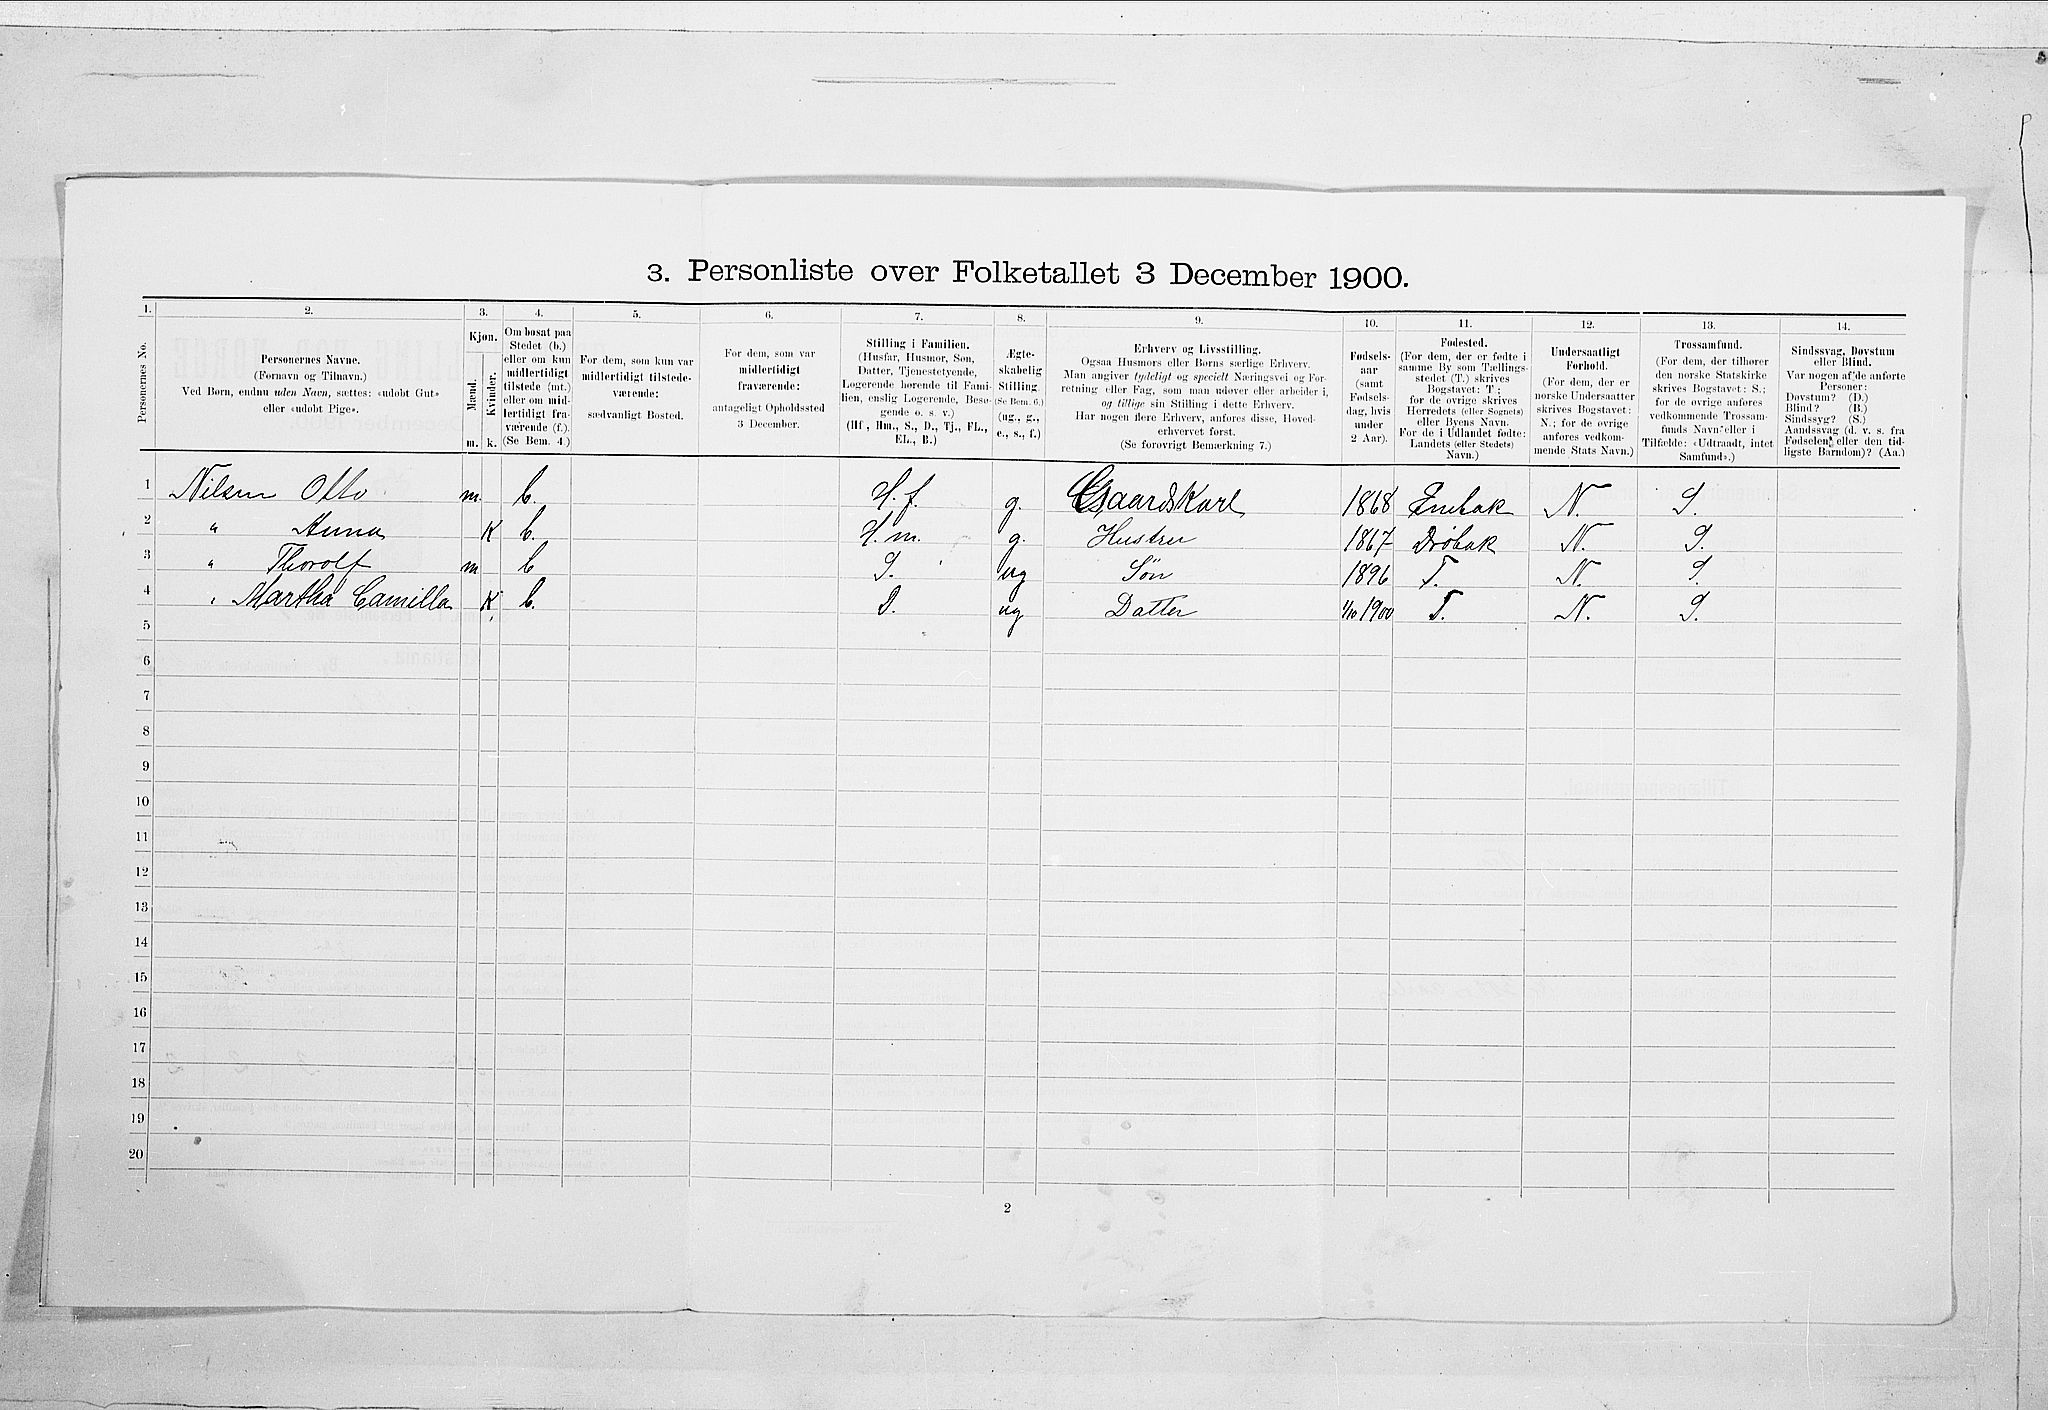 3. Personliste over Folketallet 3 December 1900.
1. 2. 3. 4. 5. 6. 7. 8. 9. 10. 11. 12. 13. 14.
Personernes No.
Personernes Navne.
(Fornavn og Tilnavn.)
Ved Børn, endnu uden Navn, sættes: «udøbt Gut»
eller «udøbt Pige».
Kjøn.
Mænd.
Kvinder.
m. k.
Om bosat paa
Stedet (b.)
eller om kun
midlertidigt
tilstede (mt.)
eller om mid-
lertidigt fra-
værende (f.).
(Se Bem. 4.)
For dem, som kun var
midlertidigt tilstede-
værende:
sædvanligt Bosted.
For dem, som var
midlertidigt
fraværende:
antageligt Opholdssted
3 December.
Stilling i Familien.
(Husfar, Husmor, Søn,
Datter, Tjenestetyende,
Logerende hørende til Fami-
lien, enslig Logerende, Besø-
gende o. s. v.)
(Hf., Hm., S., D., Tj., FL.,
EL., B.)
Ægte-
skabelig
Stilling.
(Se Bem. 6.)
(ug., g.,
e., s., f.)
Erhverv og Livsstilling.
Ogsaa Husmors eller Børns særlige Erhverv.
Man angiver tydeligt og specielt Næringsvei og For-
retning eller Fag, som man udøver eller arbeider i,
og tillige sin Stilling i dette Erhverv.
Har nogen flere Erhverv, anføres disse, Hoved-
erhvervet først.
(Se forøvrigt Bemærkning 7.)
Fødsels-
aar
(samt
Fødsels-
dag, hvis
under
2 Aar).
Fødested.
(For dem, der er fødte i
samme By som Tællings-
stedet (T.) skrives
Bogstavet: T.;
for de øvrige skrives
Herredets (eller Sognets)
eller Byens Navn.
For de i Udlandet fødte:
Landets (eller Stedets)
Navn.)
Undersaatligt
Forhold.
(For dem, der er
norske Undersaatter
skrives Bogstavet:
N.; for de øvrige
anføres vedkom-
mende Stats Navn.)
Trossamfund.
(For dem, der tilhører
den norske Statskirke
skrives Bogstavet: S.;
for de øvrige anføres
vedkommende Trossam-
funds Navn eller i
Tilfælde: «Udtraadt, intet
Samfund».)
Sindssvag, Døvstum
eller Blind.
Var nogen af de anførte
Personer:
Døvstum? (D.)
Blind? (B.)
Sindssyg? (S.)
Aandssvag (d. v. s. fra
Fødselen eller den tid-
ligste Barndom)? (Aa.)
1 Nilsen Otto m. b. H.f. g. Gaardskarl 1868 Enebak N. S.
2 " Anna K b. H.m. g. Hustru 1867 Drøbak N. S.
3 " Thorolf m b S. ug Søn 1896 T. N. S.
4 " Martha Camilla K b. D. ug Datter 1/10 1900 T. N. S.
5
6
7
8
9
10
11
12
13
14
15
16
17
18
19
20
2